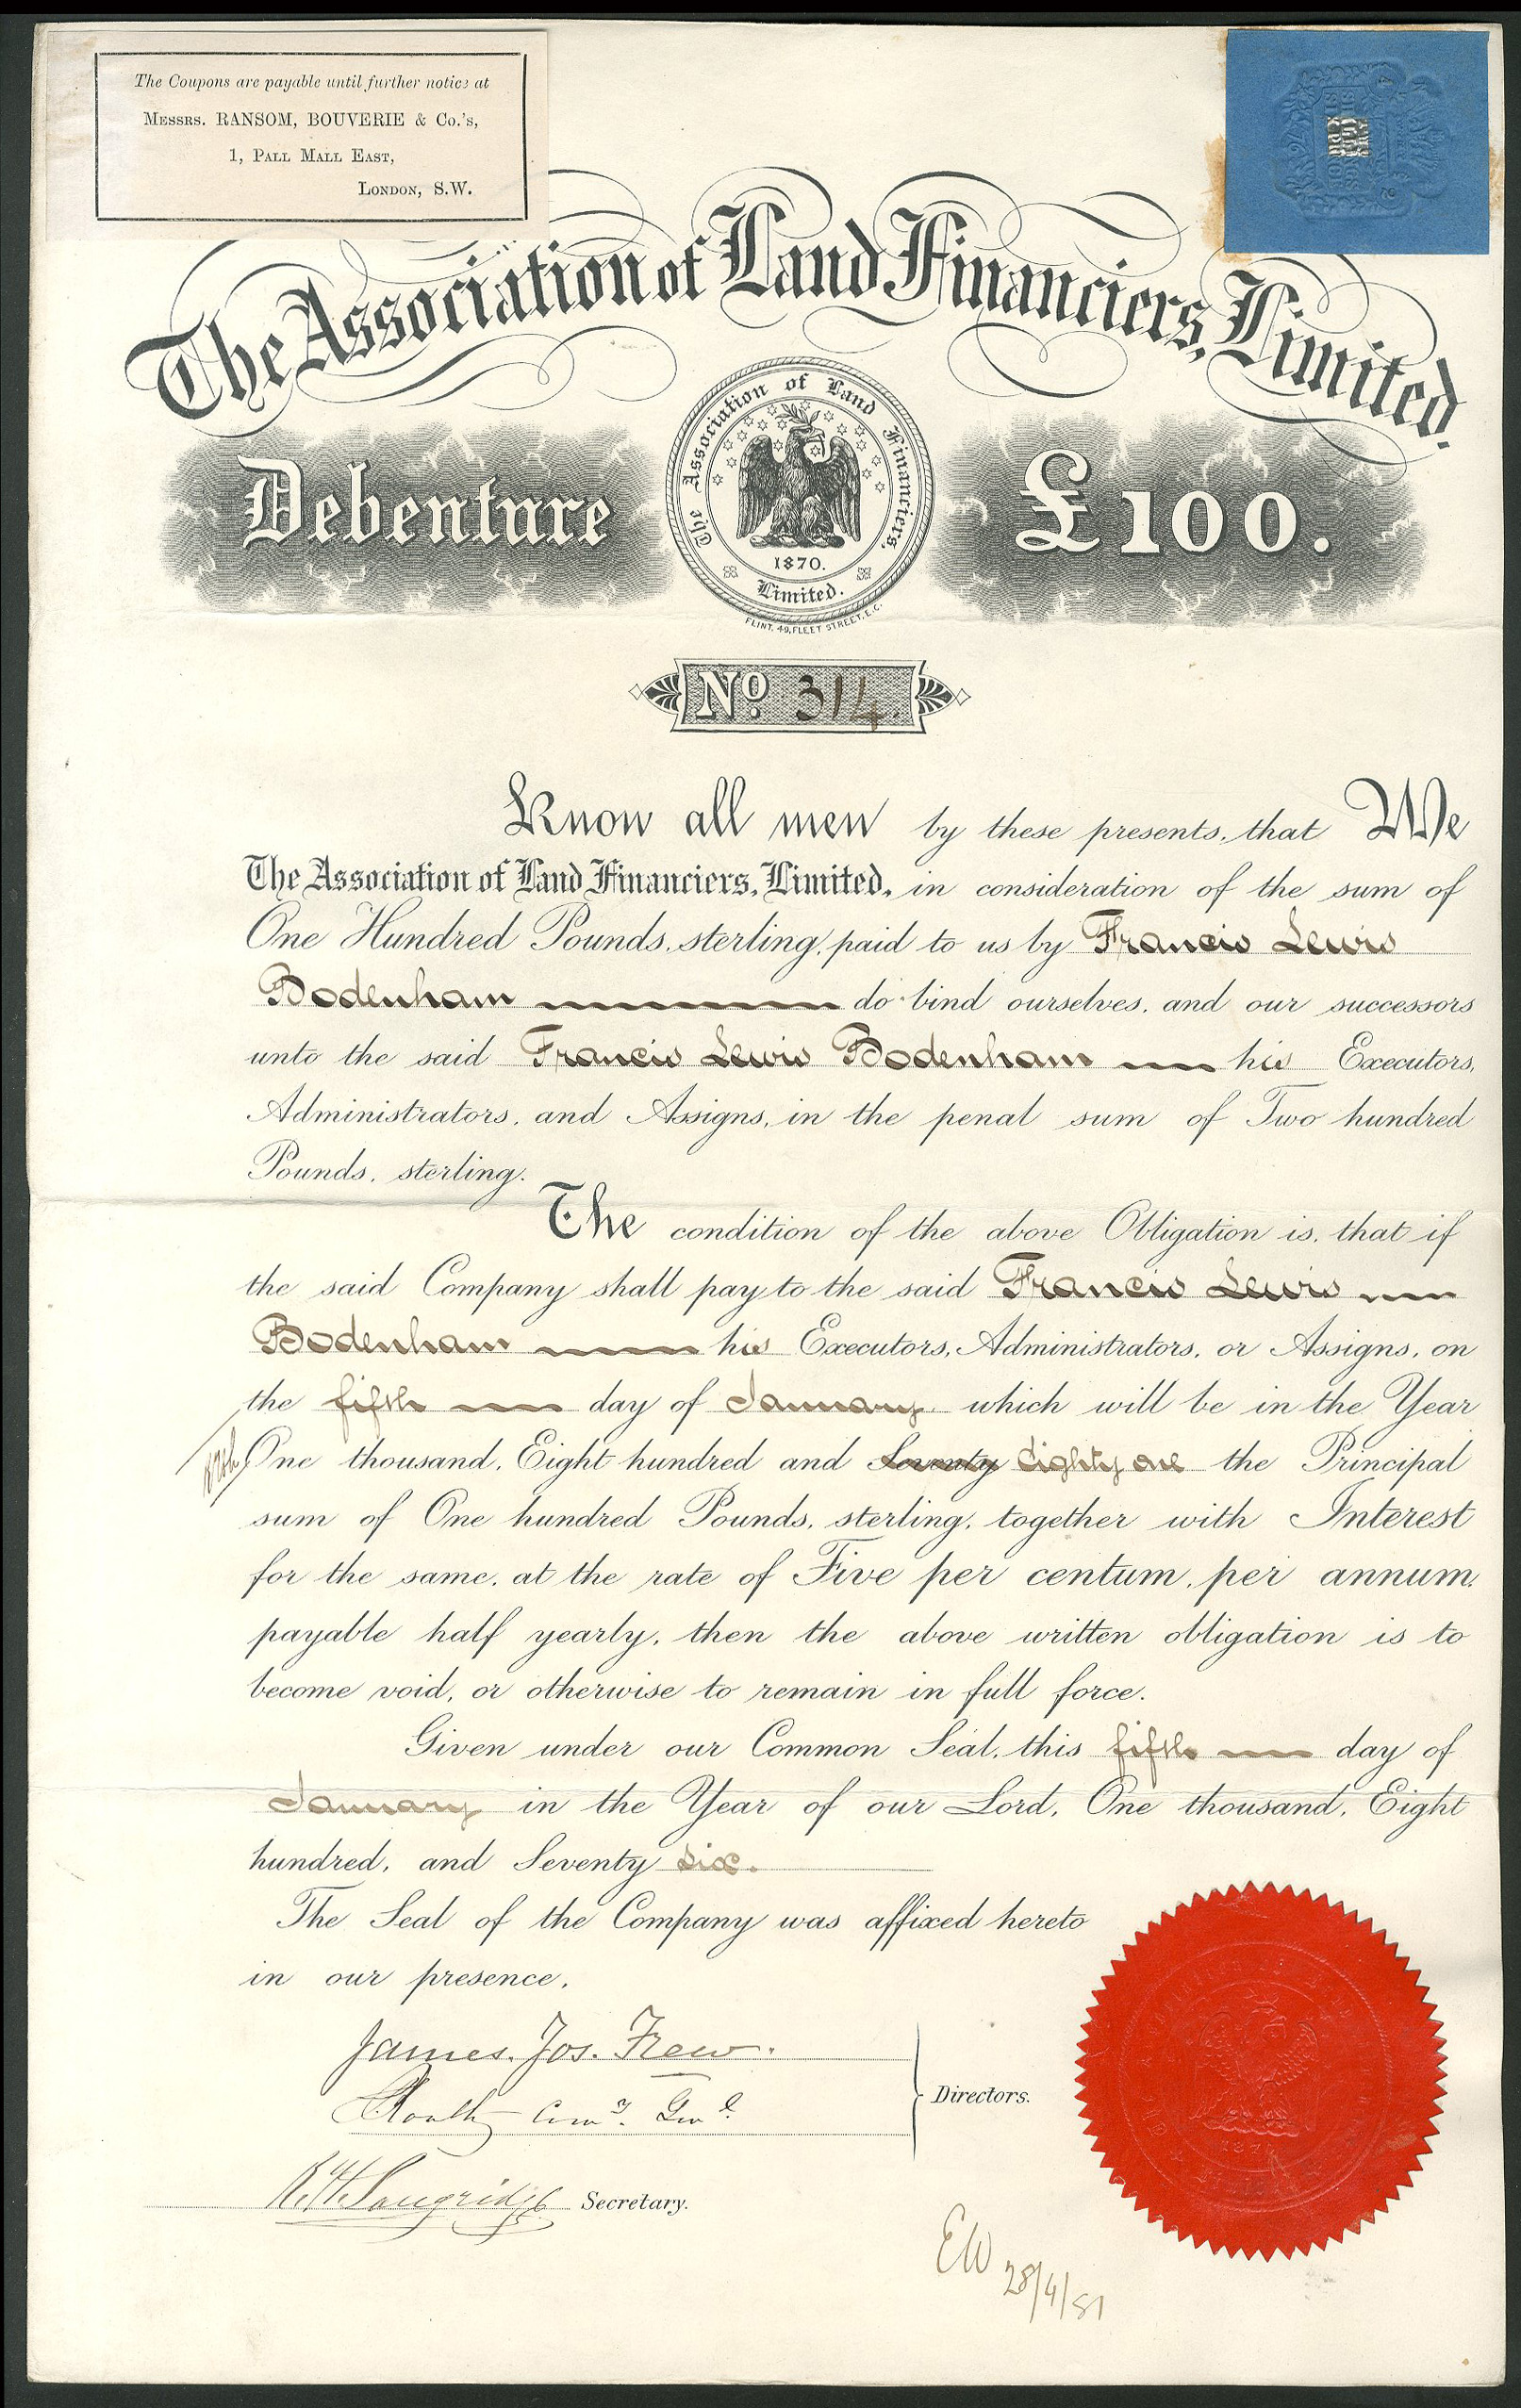 The Coupons are payable until further notice at
MESSRS. RANSOM, BOUVERIE & Co.'s,
1, PALL MALL EAST,
LONDON, S.W.
The Association of Land Financiers, Limited.
Debenture
The Association of Land Financiers,
1870.
Limited.
FLINT, 49, FLEET STREET, E.C.
£100.
No. 314.
Know all men by these presents, that We
The Association of Land Financiers, Limited, in consideration of the sum of
One Hundred Pounds, sterling, paid to us by Francis Lewis
Bodenham do bind ourselves, and our successors
unto the said Francis Lewis Bodenham his Executors,
Administrators, and Assigns, in the penal sum of Two hundred
Pounds, sterling.
The condition of the above Obligation is, that if
the said Company shall pay to the said Francis Lewis
Bodenham his Executors, Administrators, or Assigns, on
the fifth day of January which will be in the Year
One thousand, Eight hundred and Seventy Eighty one the Principal
sum of One hundred Pounds, sterling, together with Interest
for the same, at the rate of Five per centum, per annum,
payable half yearly, then the above written obligation is to
become void, or otherwise to remain in full force.
Given under our Common Seal, this fifth day of
January in the Year of our Lord, One thousand, Eight
hundred, and Seventy six.
The Seal of the Company was affixed hereto
in our presence,
James. Jos. Frew.
Directors.
Secretary.
EW 28/4/81